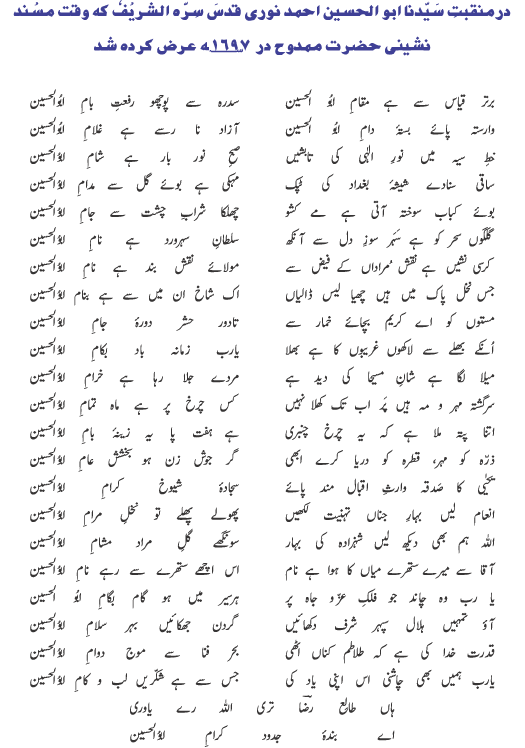 در منقبت سیّدنا ابو الحسین احمد نوری قدسَ سِرّہ الشریف کہ وقت مسند
نشینی حضرت ممدوح در ۱۲۹۷ھ عرض کردہ شد
برتر قیاس سے ہے مقامِ ابُو الحسین سدرہ سے پوچھو رفعتِ بامِ ابُوالحسین
وارستہ پائے بستۂ دامِ ابُو الحسین آزاد نا رسے ہے غلامِ ابُوالحسین
خطِ سیہ میں نورِ الٰہی کی تابشیں صبحِ نور بار ہے شامِ ابُوالحسین
ساقی سنادے شیشۂ بغداد کی ٹپک مہکی ہے بوئے گل سے مدامِ ابُوالحسین
بوئے کبابِ سوختہ آتی ہے مے کشو چھلکا شرابِ چشت سے جامِ ابُوالحسین
گلگوں سحر کو ہے سَہَرِ سوزِ دل سے آنکھ سلطانِ سہرورد ہے نامِ ابُوالحسین
کرسی نشیں ہے نقش مُراداں کے فیض سے مولائے نقش بند ہے نامِ ابُوالحسین
جس نخلِ پاک میں ہیں چھیا لیس ڈالیاں اک شاخ ان میں سے ہے بنامِ ابُوالحسین
مستوں کو اے کریم بچائے خمار سے تادور حشر دورۂ جامِ ابُوالحسین
اُنکے بھلے سے لاکھوں غریبوں کا ہے بھلا یارب زمانہ باد بکامِ ابُوالحسین
میلا لگا ہے شانِ مسیحا کی دید ہے مردے جلا رہا ہے خرامِ ابُوالحسین
سرگشتہ مہر و مہ ہیں پَر اب تک کھلا نہیں کس چرخ پر ہے ماہِ تمامِ ابُوالحسین
اتنا پتہ ملا ہے کہ یہ چرخِ چنبری ہے ہفت پا یہ زینۂ بامِ ابُوالحسین
ذرّہ کو مہر، قطرہ کو دریا کرے ابھی گر جوش زن ہو بخششِ عامِ ابُوالحسین
یحیٰی کا صدقہ وارثِ اقبال مند پائے سجادۂ شیوخِ کرامِ ابُوالحسین
انعام لیں بہارِ جناں تہنیت لکھیں پھولے پھلے تو نخلِ مرامِ ابُوالحسین
اللہ ہم بھی دیکھ لیں شہزادہ کی بہار سونگھے گلِ مراد مشامِ ابُوالحسین
آقا سے میرے ستھرے میاں کا ہوا ہے نام اس اچھے ستھرے سے رہے نامِ ابُوالحسین
یا رب وہ چاند جو فلکِ عزّو جاہ پر ہرسیر میں ہو گام بگامِ ابُو الحسین
آؤ تمہیں ہلال سپہر شرف دکھائیں گردن جھکائیں بہر سلامِ ابُوالحسین
قدرت خدا کی ہے کہ طلاطم کناں اٹھی بحرِ فنا سے موجِ دوامِ ابُوالحسین
یارب ہمیں بھی چاشنی اس اپنی یاد کی جس سے ہے شکّریں لب و کامِ ابُوالحسین
ہاں طالعِ رضاؔ تری اللہ رے یاوری
اے بندۂ جدودِ کرامِ ابُوالحسین